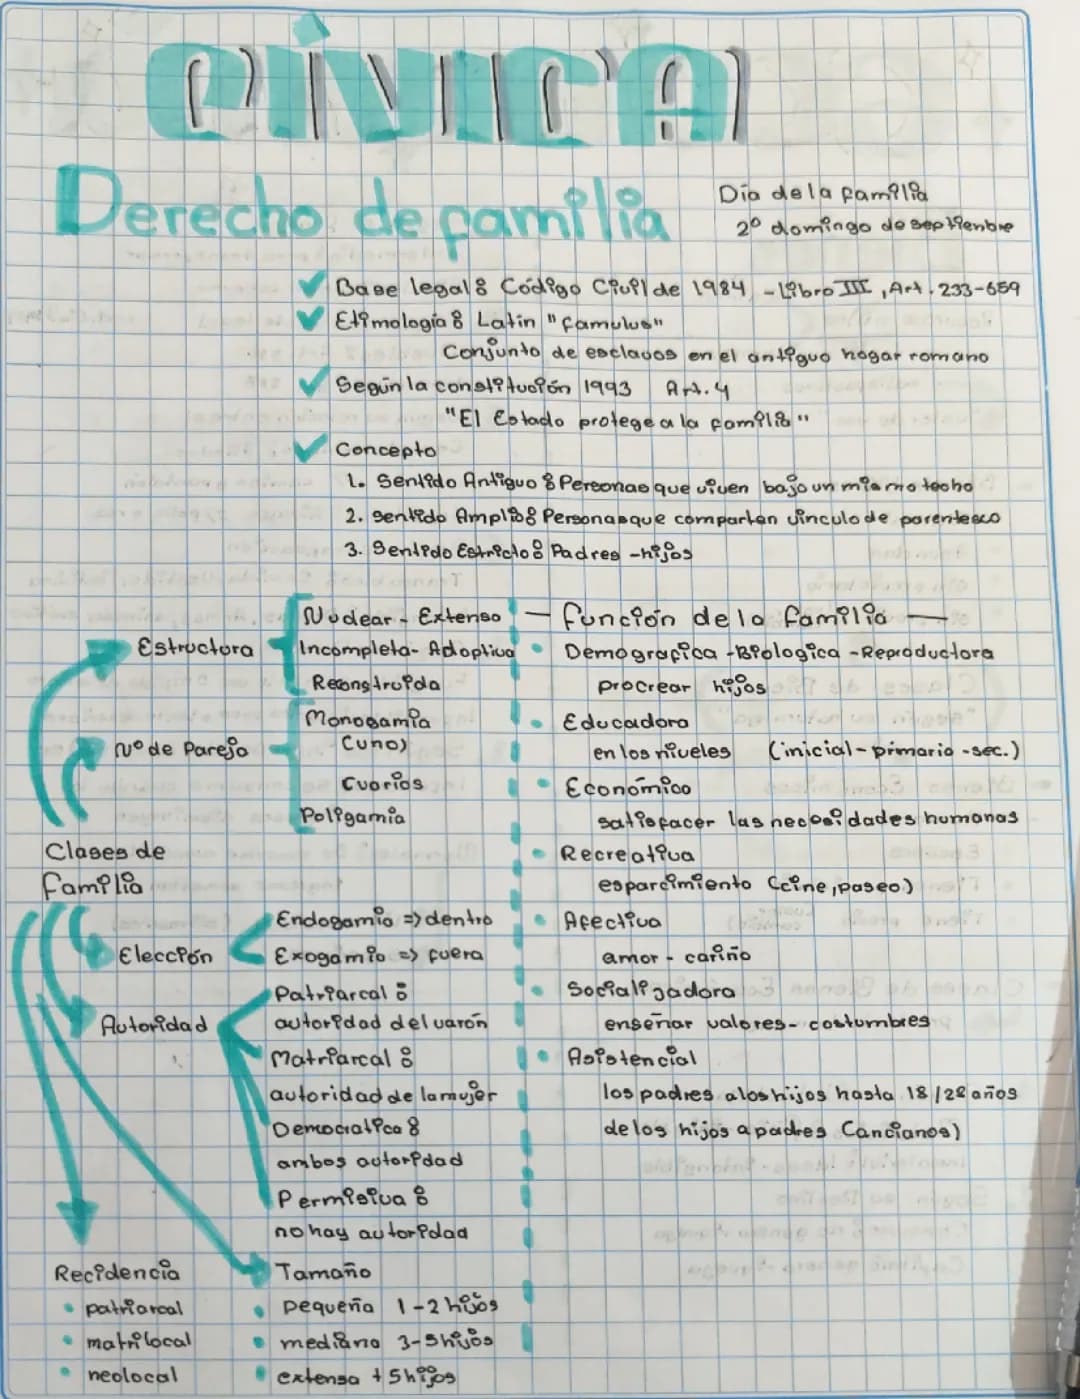 CÍVICA
Derecho de familia
Día de la familia
2º domingo de septienbre
Base legal: Código Civil de 1984 - Libro III, Art. 233-659
Etimología: Latin "famulus"
Conjunto de esclavos en el antiguo hogar romano
Según la constitución 1993 Art. 4
"El Estado protege a la familia"
Concepto
1. Sentido Antiguo: Personas que viven bajo un mismo techo
2. Sentido Amplio: Personas que comparten vinculo de parentesco
3. Sentido Estricto: Padres - hijos
Clases de
familia
Estructura
Nuclear - Extenso
Incompleta - Adoptiva
Reconstruida
Nº de Pareja
Monogamia
(uno)
(varios
Poligamia
Elección
Endogamia => dentro
Exogamia => fuera
Autoridad
Patriarcal:
autoridad del varón
Matriarcal:
autoridad de la mujer
Democratica:
ambos autoridad
Permisiva:
no hay autoridad
Recidencia
patriarcal
matrilocal
neolocal
Tamaño
pequeña 1-2 hijos
mediano 3-5 hijos
extensa + 5 hijos
— función de la familia —
Demografica - Biologica - Reproductora
procrear hijos
Educadora
en los niveles (inicial - primario - sec.)
Económico
satisfacer las necesidades humanas
Recreativa
esparcimiento (cine, paseo)
Afectiva
amor - cariño
Socializadora
enseñar valores - costumbres
Asistencial
los padres a los hijos hasta 18/28 años
de los hijos a padres (ancianos)